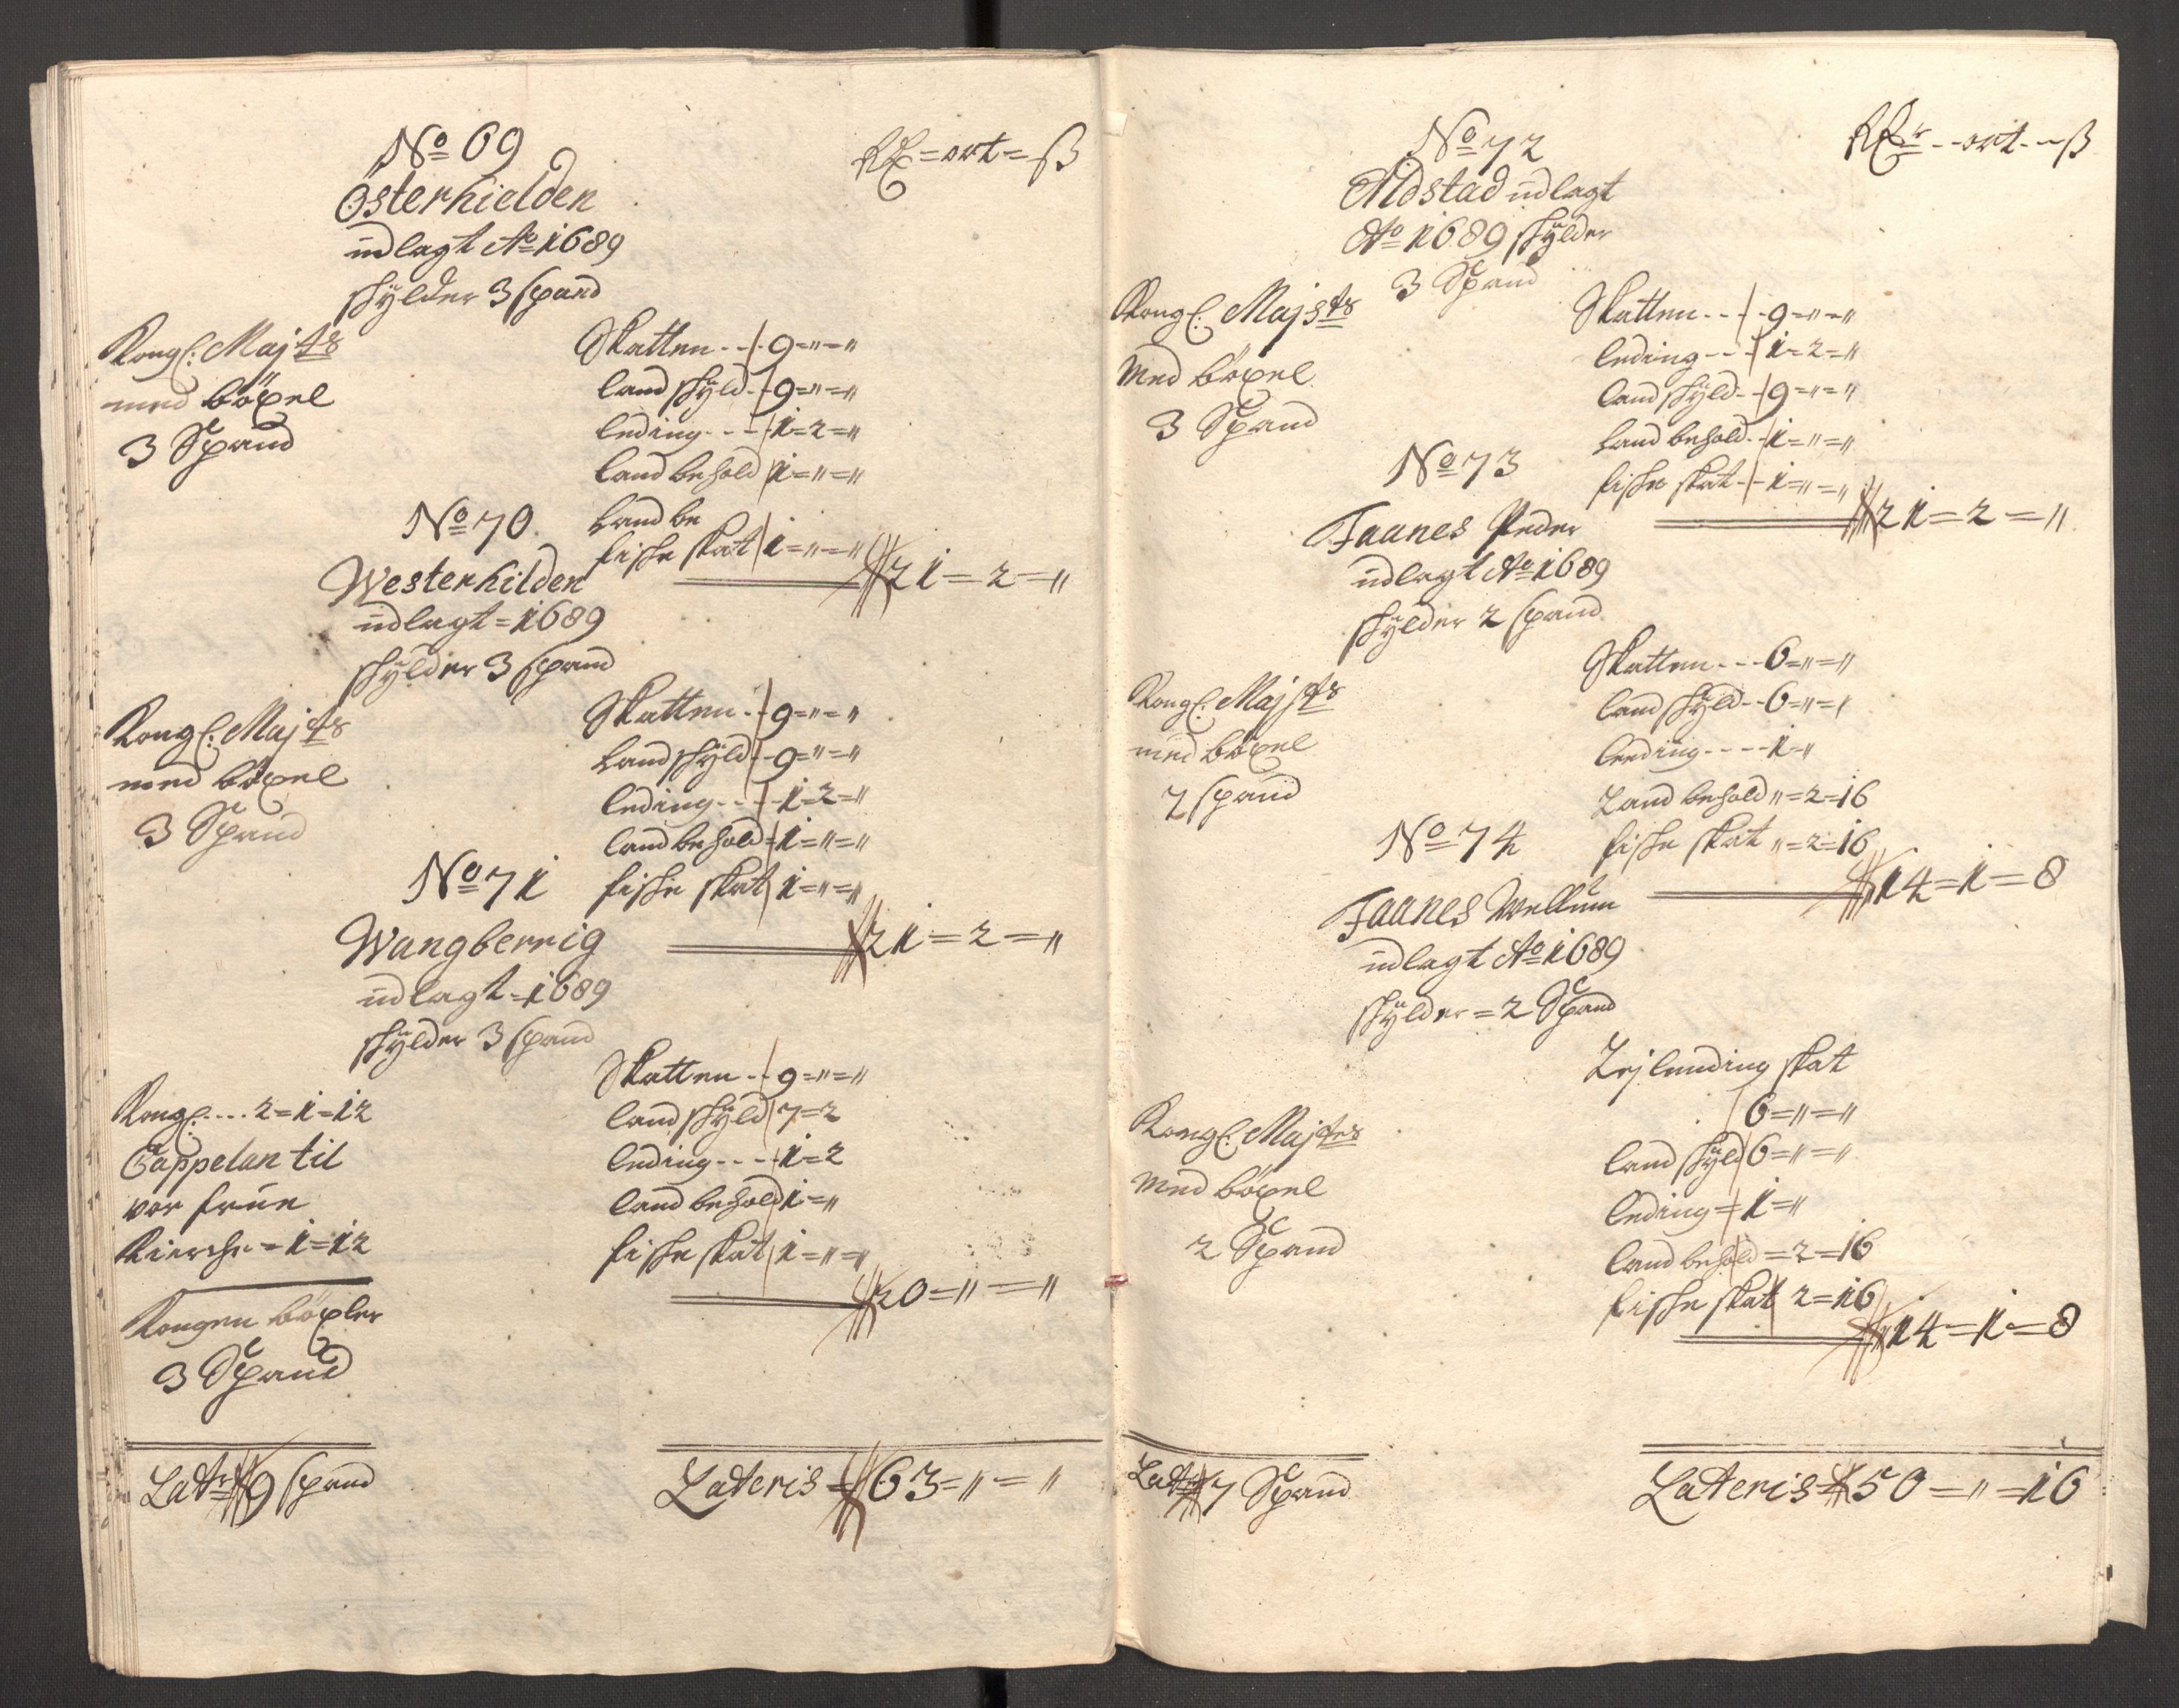 No 69
Rdr = ort = ß
Österhielden
udlagt Ao 1689
skylder 3 spand
Kongl: Majts
med böxel
3 Spand
Skatten - - 9 = " = "
landskyld - - 9 = " = "
leding - - - 1 = 2 = "
landbehold 1 = " = "
land be
fiske skat 1 = " = "
21 = 2 = "
No 70
Westerhilden
udlagt = 1689
skylder 3 spand
Kongl: Majts
med böxel
3 Spand
Skatten - - 9 = " = "
landskyld - - 9 = " = "
leding - - - 1 = 2 = "
landbehold = 1 = " = "
fiske skat 1 = " = "
21 = 2 = "
No 71
Wangberrig
udlagt = 1689
skylder 3 spand
Kongl: ... 2 = 1 = 12
Cappelan til
vor frue
Kierche = 1 = 12
Kongen böxler
3 Spand
Skatten - - 9 = " = "
landskyld 7 = 2
leding - - - - 1 = 2
landbehold 1 = "
fiske skat 1 = " = "
20 = " = "
Latr 9 spand
Lateris = 63 = " = "
No 72
Rdr - - ort - - ß
Alstad udlagt
Ao 1689 skylder
3 Spand
Kongl: Majsts
med böxel
3 Spand
Skatten - - - 9 = " = "
leding - - - 1 = 2 = "
landskyld - - 9 = " = "
landbehold - - 1 = " = "
fiske skat - - 1 = " = "
21 = 2 = "
No 73
Faanes Peder
udlagt Ao 1689
skylder 2 spand
Kongl: Majsts
med böxel
2 spand
Skatten - - - 6 = " = "
landskyld - - 6 = " = "
leeding - - - - 1 = "
Landbehold " = 2 = 16
fiske skat " = 2 = 16
14 = 1 = 8
No 74
Faanes Mellum
udlagt Ao 1689
skylder = 2 Spand
Kongl: Majtes
med böxel
2 Spand
Lejlending skat
6 = " = "
landskyld 6 = " = "
leding = 1 = "
landbehold = 2 = 16
fiske skat 2 = 16
14 = 1 = 8
Latr 7 Spand
Lateris = 50 = " = 16